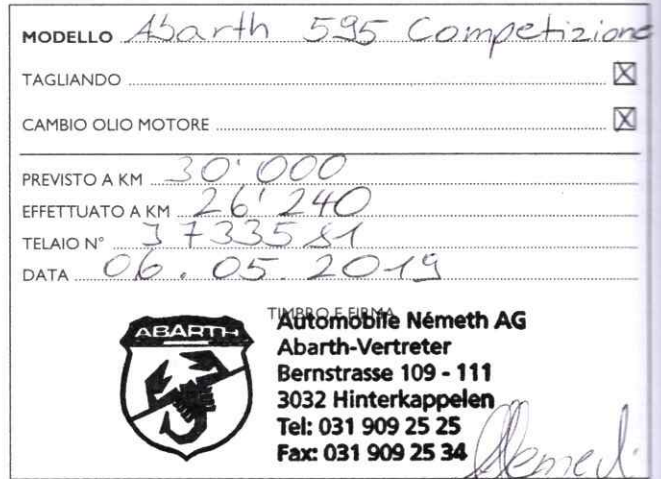 MODELLO Abarth 595 Competizione
TAGLIANDO ☒
CAMBIO OLIO MOTORE ☒
PREVISTO A KM 30'000
EFFETTUATO A KM 26'240
TELAIO N° J7333581
DATA 06.05.2019
TIMBRO E FIRMA
ABARTH
Automobile Németh AG
Abarth-Vertreter
Bernstrasse 109 - 111
3032 Hinterkappelen
Tel: 031 909 25 25
Fax: 031 909 25 34